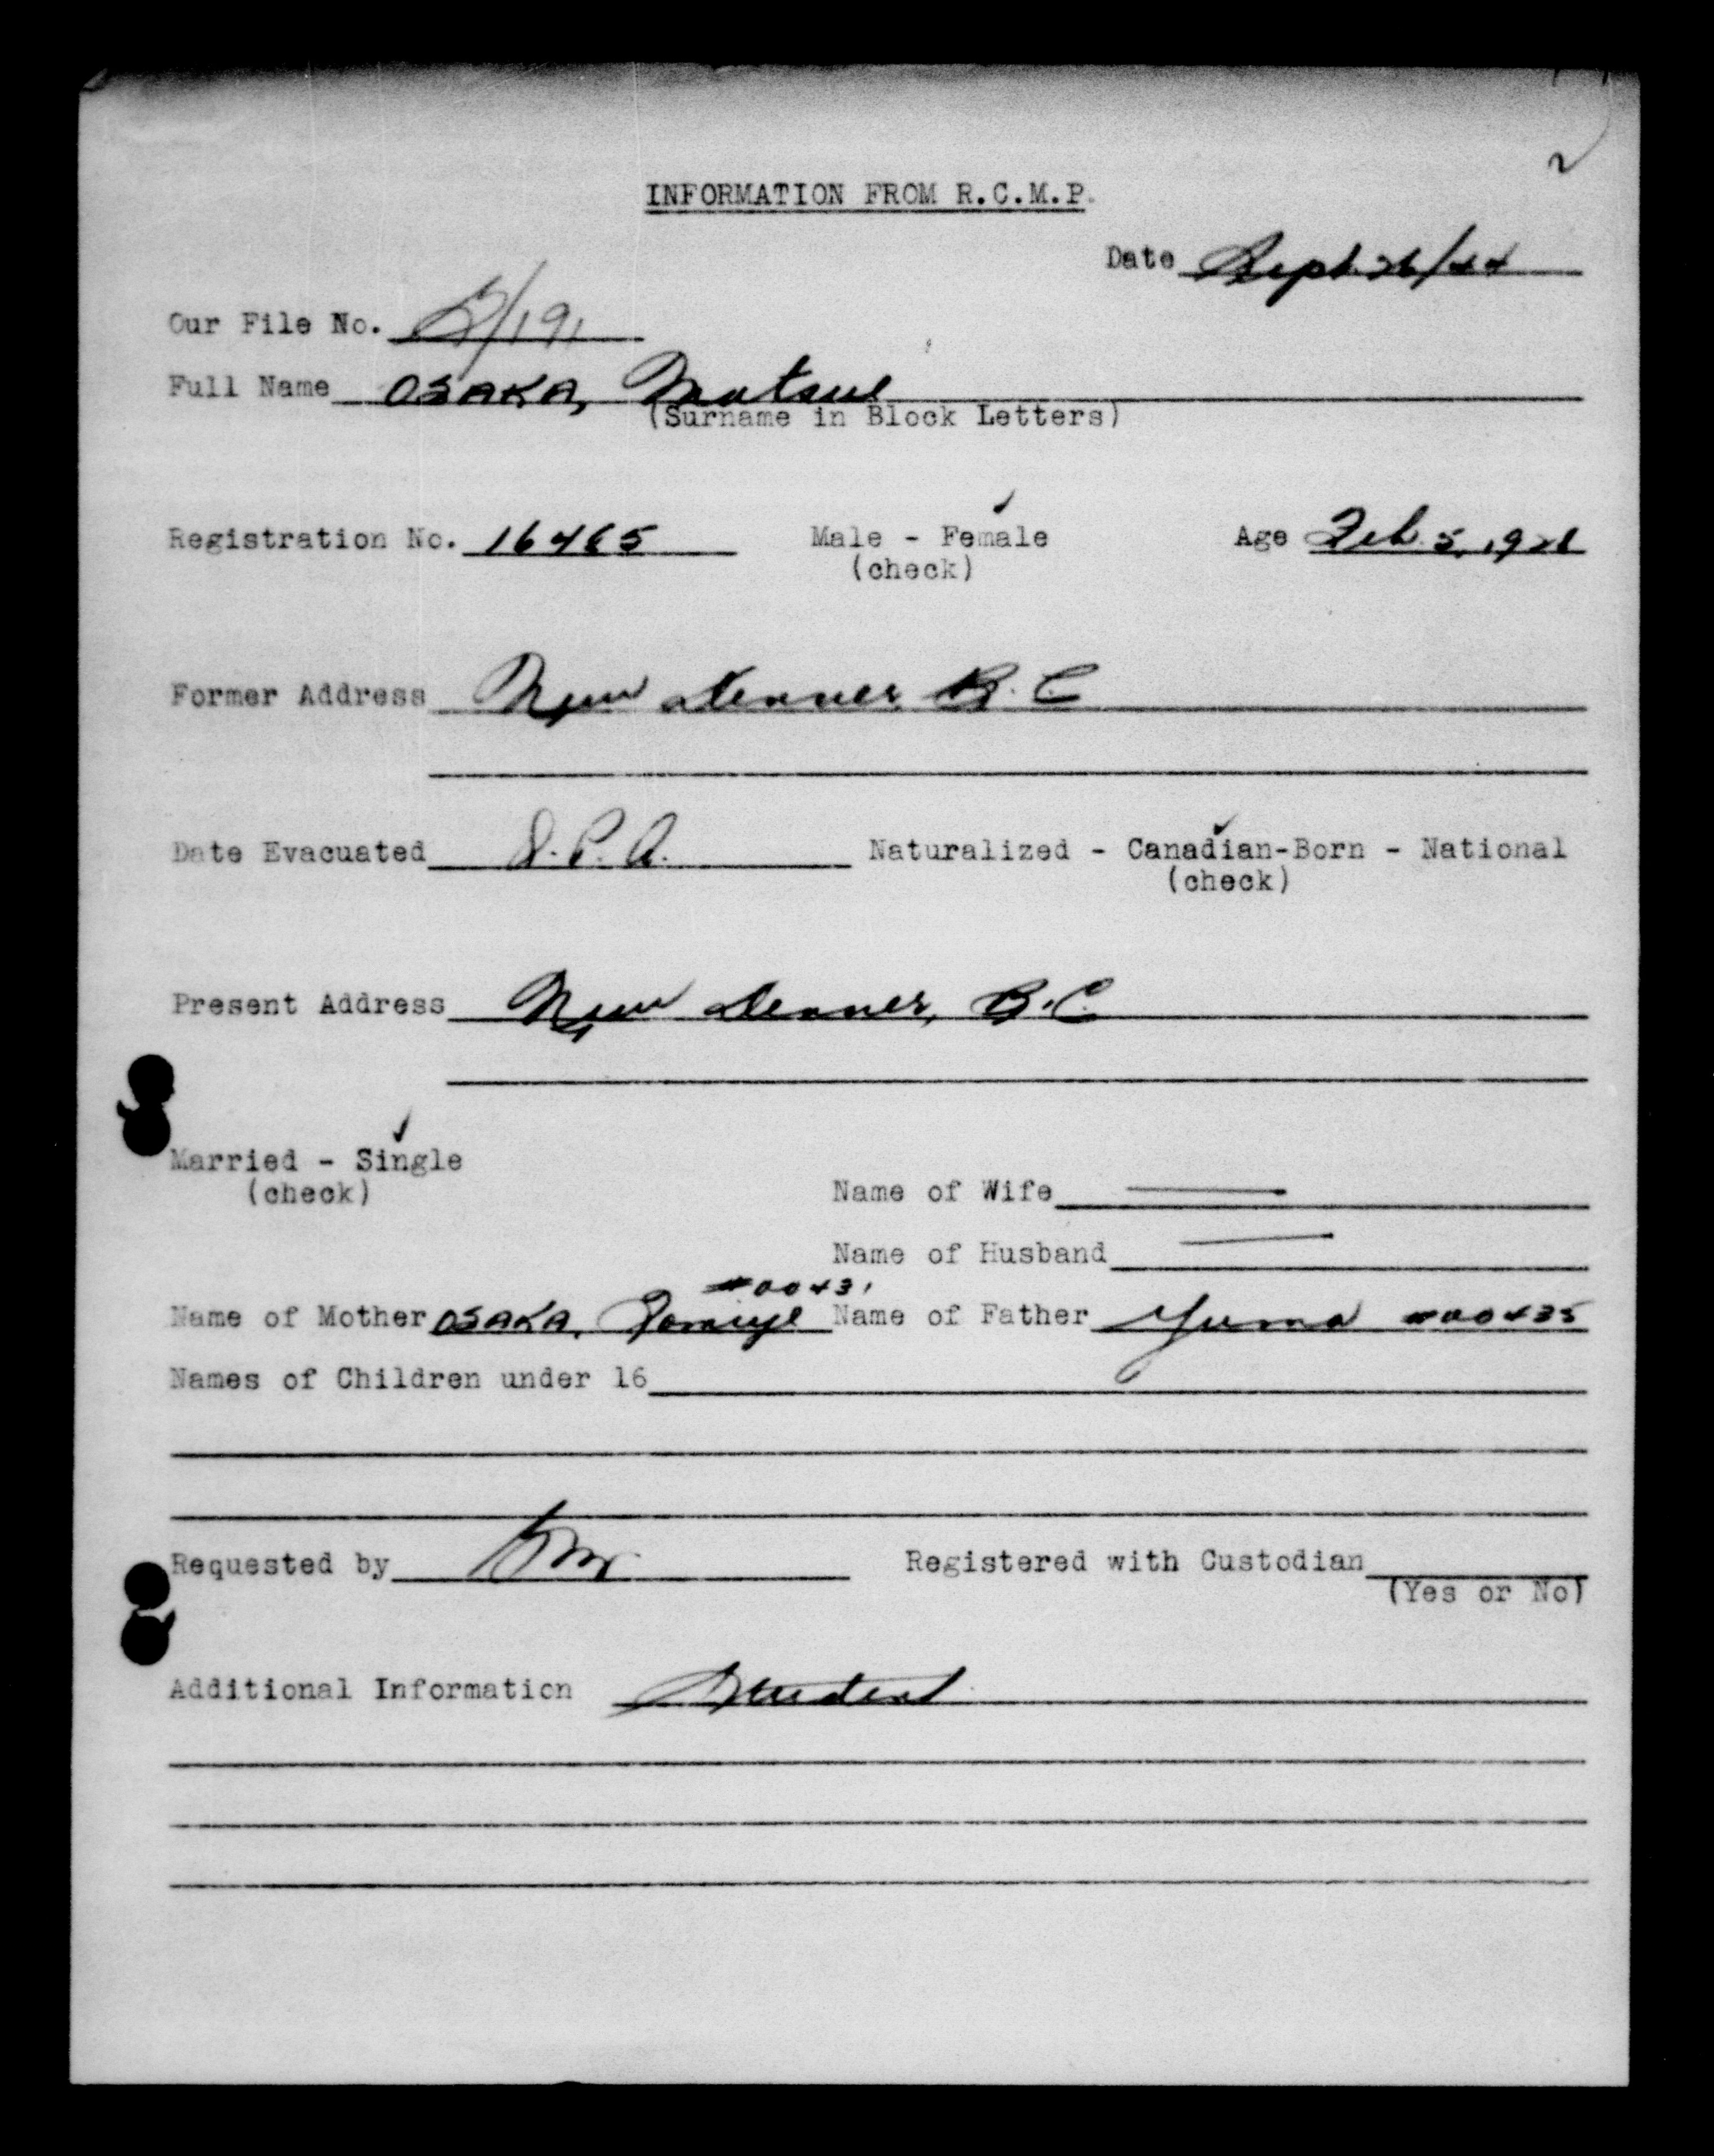 2
INFORMATION FROM R.C.M.P.
Date Sept. 26/44
Our File No. /191
Full Name OSAKA, Matsue
(Surname in Block Letters)
Registration No. 16465 Male - Female ✓ Age Feb. 5, 1928
(check)
Former Address New Denver B.C
Date Evacuated Naturalized - Canadian-Born ✓ - National
(check)
Present Address New Denver, B.C.
Married - Single ✓
(check)
Name of Wife —
Name of Husband —
#00431
Name of Mother OSAKA, Tomiye Name of Father #00435
Names of Children under 16
Requested by Registered with Custodian
(Yes or No)
Additional Information Student